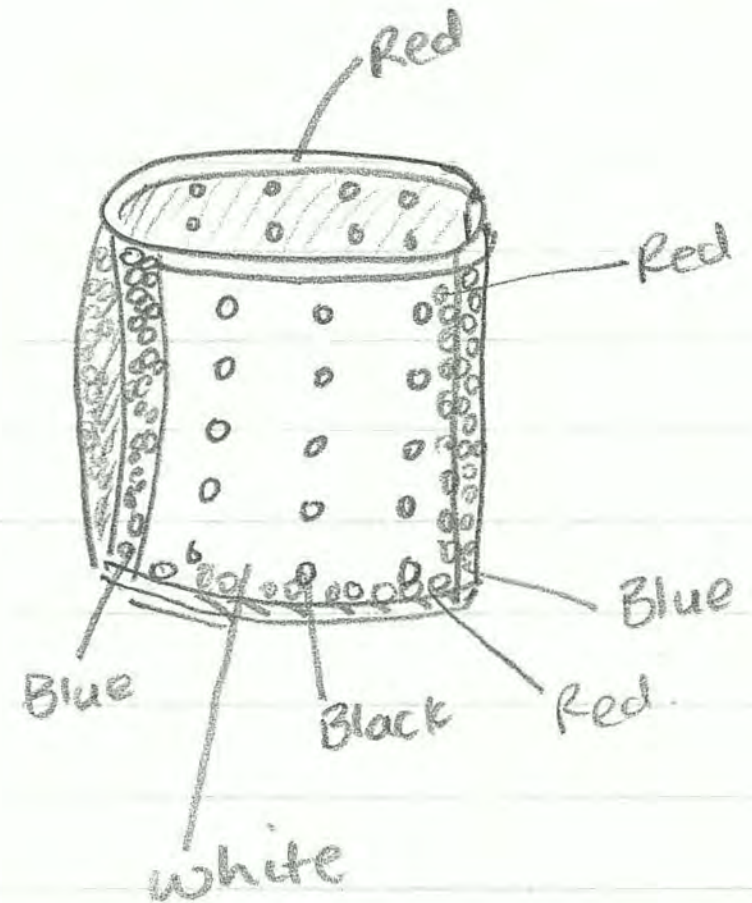 Red
Red
Blue
Blue
Black
Red.
white